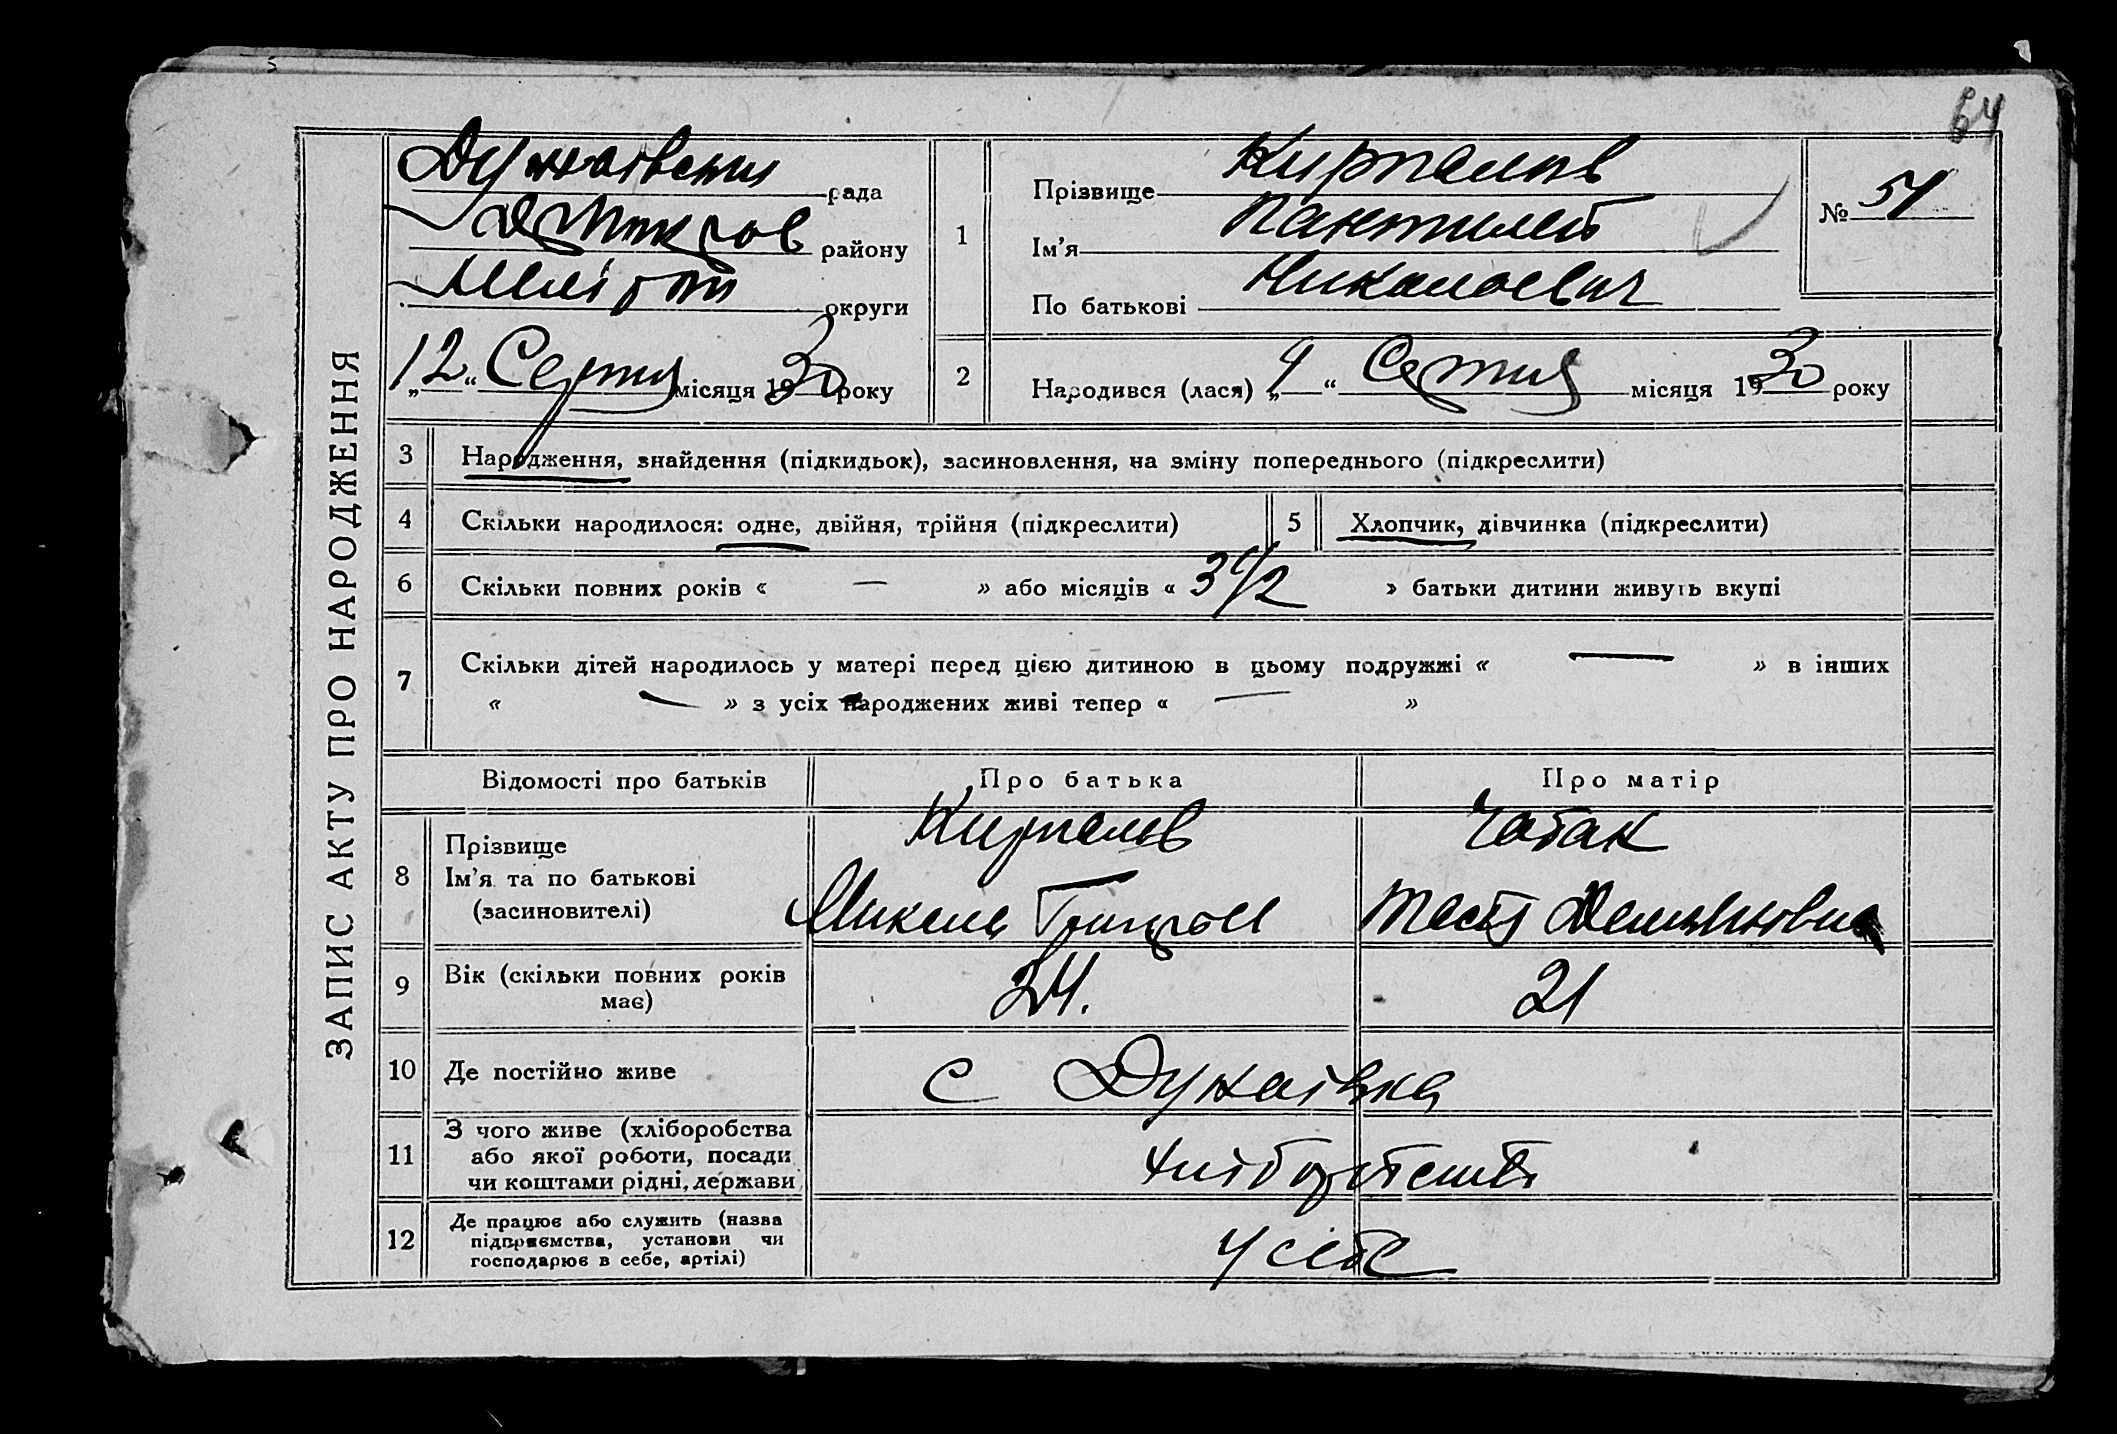 64
Дунаївська рада
району
Меліт округи
1 Прізвище Кирпалов
Ім’я Пантилей
По батькові Николаевич
№ 51
„12“ Серпня місяця 1930 року
2 Народився (лася) „9“ Серпня місяця 1930 року
ЗАПИС АКТУ ПРО НАРОДЖЕННЯ
3 Народження, знайдення (підкидьок), засиновлення, на зміну попереднього (підкреслити)
4 Скільки народилося: одне, двійня, трійня (підкреслити) 5 Хлопчик, дівчинка (підкреслити)
6 Скільки повних років « — » або місяців « 3 1/2 » батьки дитини живуть вкупі
7 Скільки дітей народилось у матері перед цією дитиною в цьому подружжі « — » в інших
« — » з усіх народжених живі тепер « — »
Відомості про батьків Про батька Про матір
8 Прізвище
Ім’я та по батькові
(засиновителі)
Кирпалов
Микола Григоров
Чабак
Демянновна
9 Вік (скільки повних років
має)
24. 21
10 Де постійно живе с Дунаівка
11 З чого живе (хліборобства
або якої роботи, посади
чи коштами рідні, держави
12 Де працює або служить (назва
підприємства, установи чи
господарює в себе, артілі)
У себе